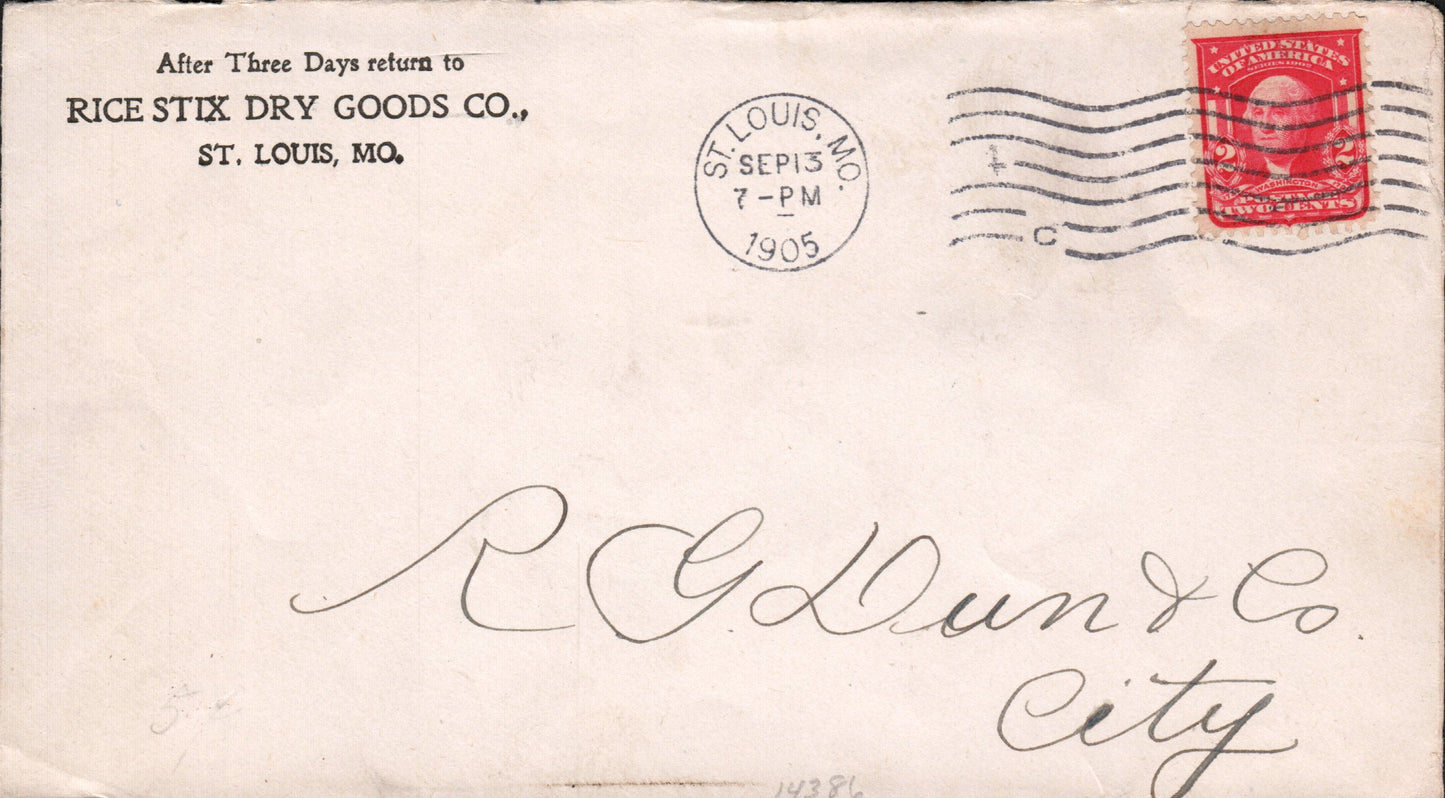 After Three Days return to
RICE STIX DRY GOODS CO.,
ST. LOUIS, MO.
ST. LOUIS, MO.
SEP 13
7 - PM
1905
1
C
UNITED STATES
OF AMERICA
SERIES 1902
2 2
WASHINGTON
TWO CENTS
R G Dun & Co.
City
14386